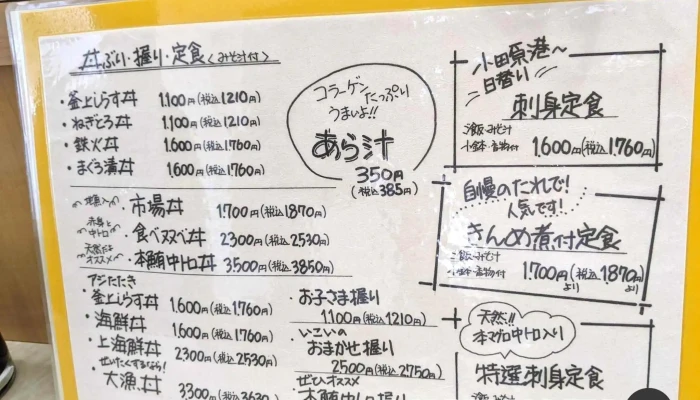 丼ぶり・握り・定食〈みそ汁付〉
・釜上しらす丼 1,100円(税込1210円)
・ねぎとろ丼 1,100円(税込1210円)
・鉄火丼 1,600円(税込1,760円)
・まぐろ漬丼 1,600円(税込1,760円)
地魚入 ・市場丼 1,700円(税込1,870円)
赤身と中トロ ・食べ双べ丼 2300円(税込2530円)
天然だよオススメ ・本鮪中トロ丼 3,500円(税込3850円)
アジたたき
・釜上しらす丼 1,600円(税込1,760円)
・海鮮丼 1,600円(税込1,760円)
・上海鮮丼 2300円(税込2530円)
ぜいたくするなら!
・大漁丼 3,300円(税込3630円)
・お子さま握り
1100円(税込1210円)
・いこいの
おまかせ握り
2500円(税込2750円)
ぜひオススメ
・本鮪中トロ握り
コラーゲンたっぷり
うまいよ!!
あら汁
350円
(税込385円)
小田原港〜
日替り
刺身定食
ご飯・みそ汁
小鉢・香物付 1,600円(税込1,760円)
自慢のたれで!
人気です!
きんめ煮付定食
ご飯・みそ汁
小鉢・香物付 1,700円より(税込1,870円)より
天然!!
本マグロ中トロ入り
特選刺身定食
ご飯・みそ汁